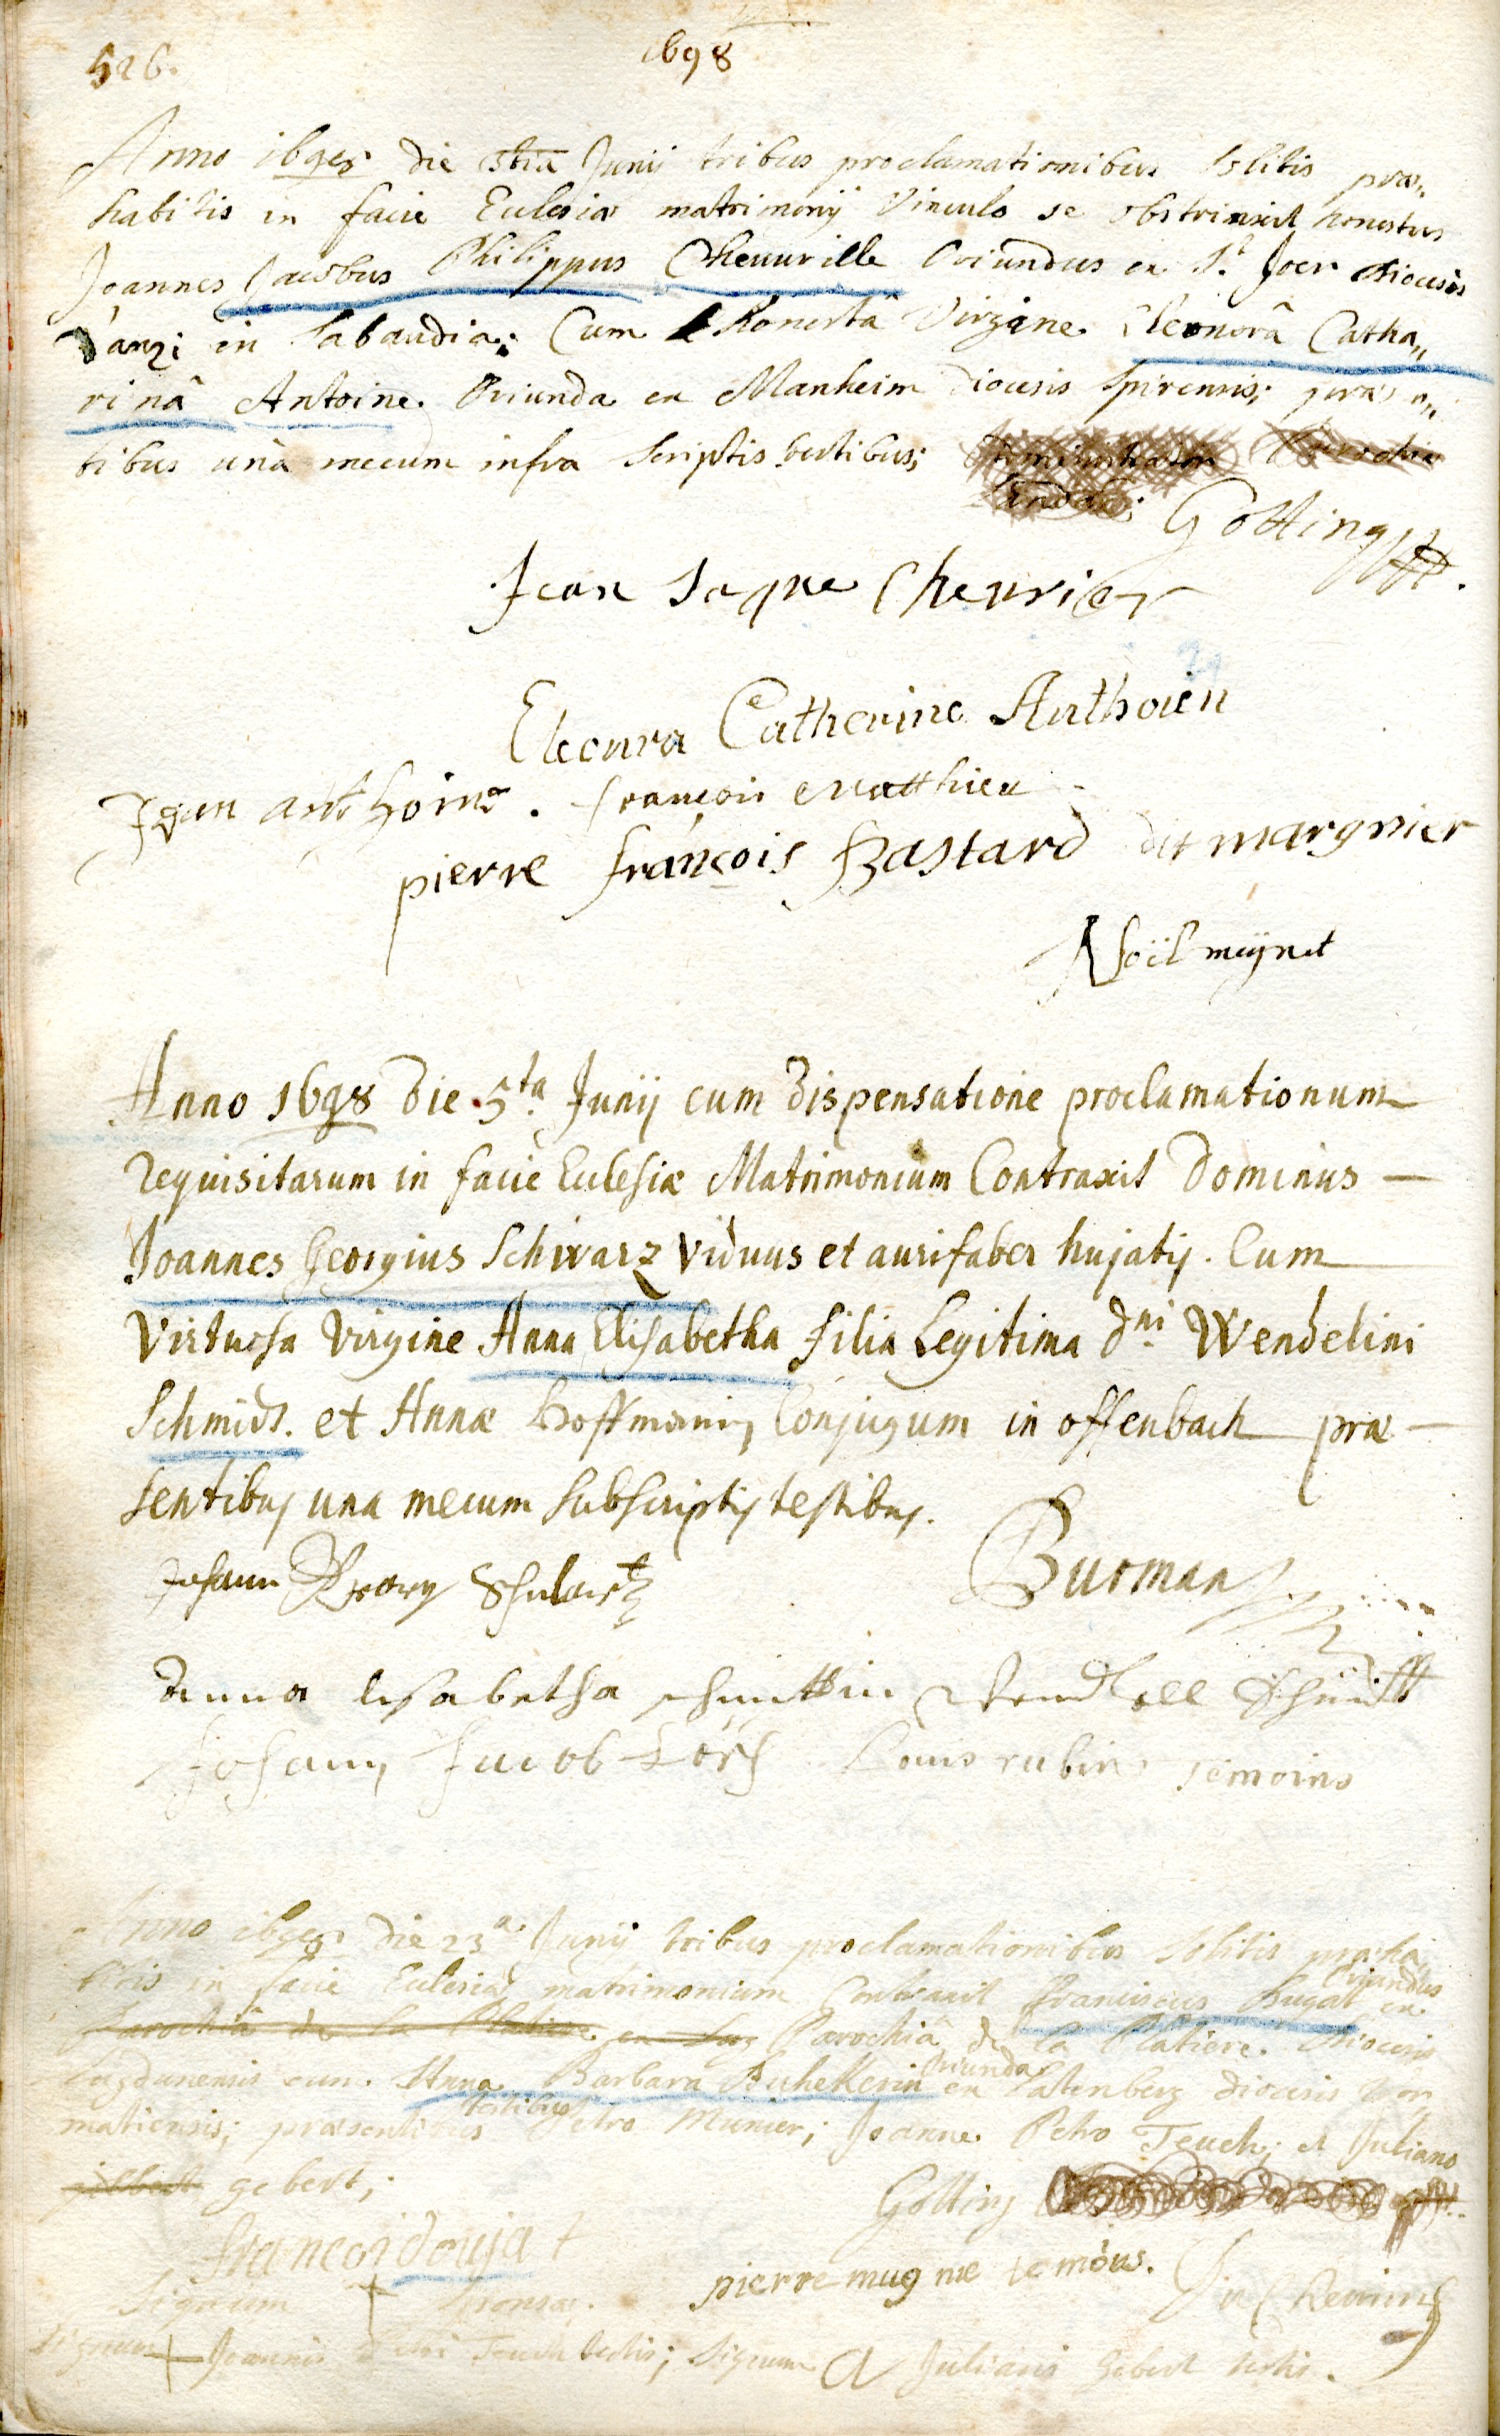 526.
1698
Anno 1698 die 3tia Junii tribus proclamationibus Solitis præ„
habitis in facie Eclesiæ matrimonij Vinculo se obstrinxit honestus
Joannes Jacobus Philippus Cheuurille Oriundus ex St Joer diocesis
d'anzi in Sabaudia; Cum Honestâ Virgine Eleonorâ Catha„
rinâ Antoine Oriunda ex Manheim diocesis Spirensis; præs
tibus unà mecum infra Scriptis testibus;
Gotting
Jean Jaque Cheurier
Eleonora Catherine Anthoien
Jean anthoine. françois Matthieu
pierre françois Bastard dit margnier
Noïl meynet
Anno 1698 die 5ta Junij cum dispensatione proclamationum
requisitarum in facie Eclesiæ Matrimonium Contraxit Dominus —
Joannes Georgius Schwarz viduus et aurifaber hujatis. Cum
Virtuosa Virgine Anna Elisabetha filia Legitima dni Wendelini
Schmidt. et Annæ Hoffmanin Conjugum in offenbach præ —
sentibus una mecum subscriptis testibus.
Johann Georg Schwartz
Burman
Anna lisabetha schmittin Wendell Schmitt
Johann Jacob Louis rubin temoins
Anno 1698 die 23a Junij tribus proclamationibus Solitis præha
bitis in facie Eclesiæ matrimonium Contraxit Franciscus Bugat Oriundus ex
Parochiâ de la Platiere Parochiâ de la Platiere. Diocesis
Lugdunensis cum Anna Barbara Oriunda ex diocesis Wor
matiensis; præsentibus testibus Petro Munier; Joanne Petro Teuch; et Juliano
gilbert gebert;
Gotting
pierre mugnie temouns.
Signum † Sponsæ.
Signum † Joannis Petri Teuch testis; Signum a Juliani Gebert testis.